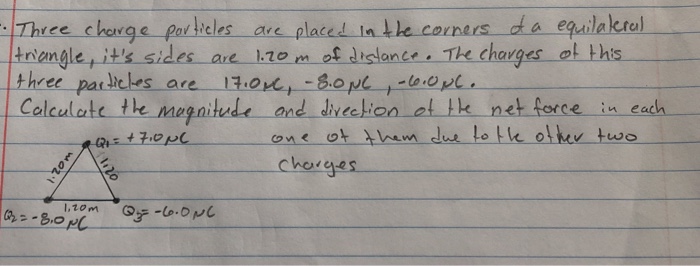 Three charge particles are placed in the corners of a equilateral
triangle, it's sides are 1.20 m of distance. The charges of this
three particles are 17.0 μC, -8.0 μC, -6.0 μC.
Calculate the magnitude and direction of the net force in each
one of them due to the other two
charges
Q1 = +7.0 μC
1.20m
1.20
1.20m
Q2 = -8.0 μC
Q3 = -6.0 μC